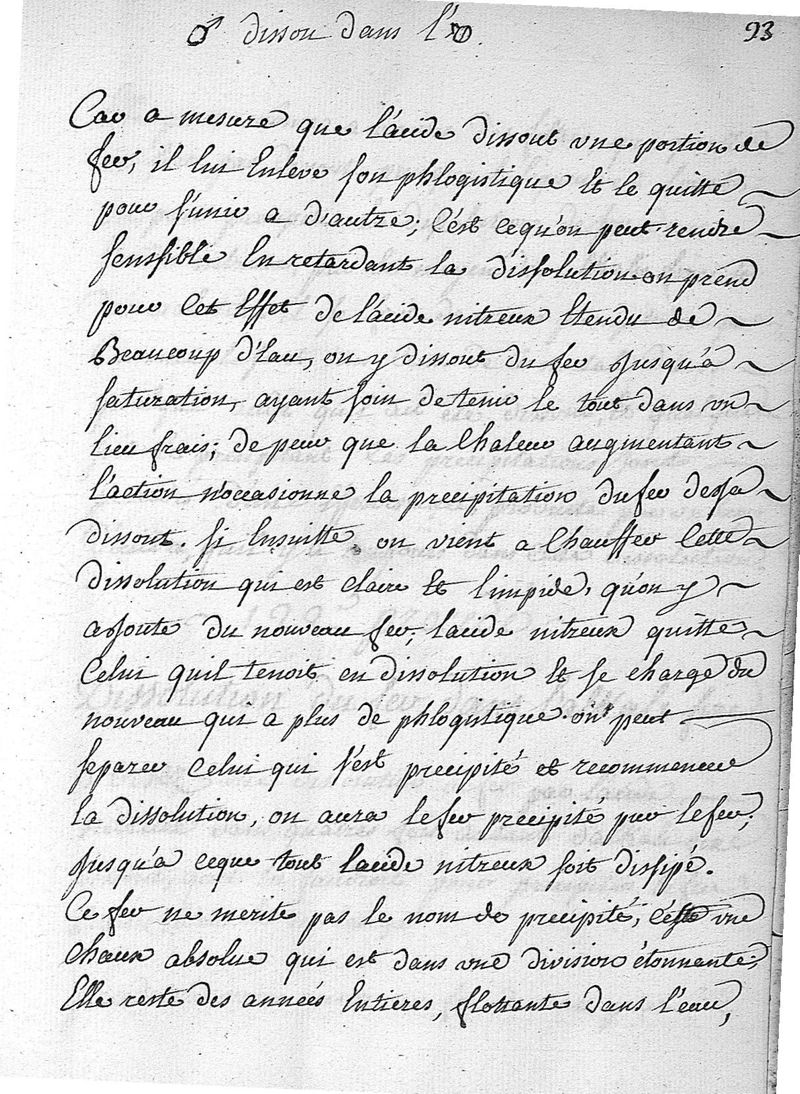 ♂ dissou dans l'
93
Car a mesure que l'acide dissout une portion de
fer, il lui Enleve son phlogistique Et le quitte
pour s'unir a d'autre; C'est cequ'on peut rendre
sensible En retardant la dissolution on prend
pour Cet Effet de l'acide nitreux Etendu de
Beaucoup d'Eau, on y dissout du fer Jusqu'a
saturation, ayant soin de tenir le tout dans un
lieu frais; de peur que la Chaleur augmentant
l'action n'occasionne la precipitation du fer desja
dissout. Si Ensuitte on vient a Chauffer Cette
dissolution qui est claire Et limpide, qu'on y
ajoute du nouveau fer; lacide nitreux quitte
Celui quil tenoit en dissolution Et se charge du
nouveau qui a plus de phlogistique. on peut
separer Celui qui s'est precipité et recommencer
la dissolution, on aura le fer precipité par le fer;
Jusqu'a ceque tout lacide nitreux soit dissipé.
Ce fer ne merite pas le nom de precipité; C'est une
chaux absolue qui est dans une division étonnante;
Elle reste des années Entieres, flottante dans l'eau,